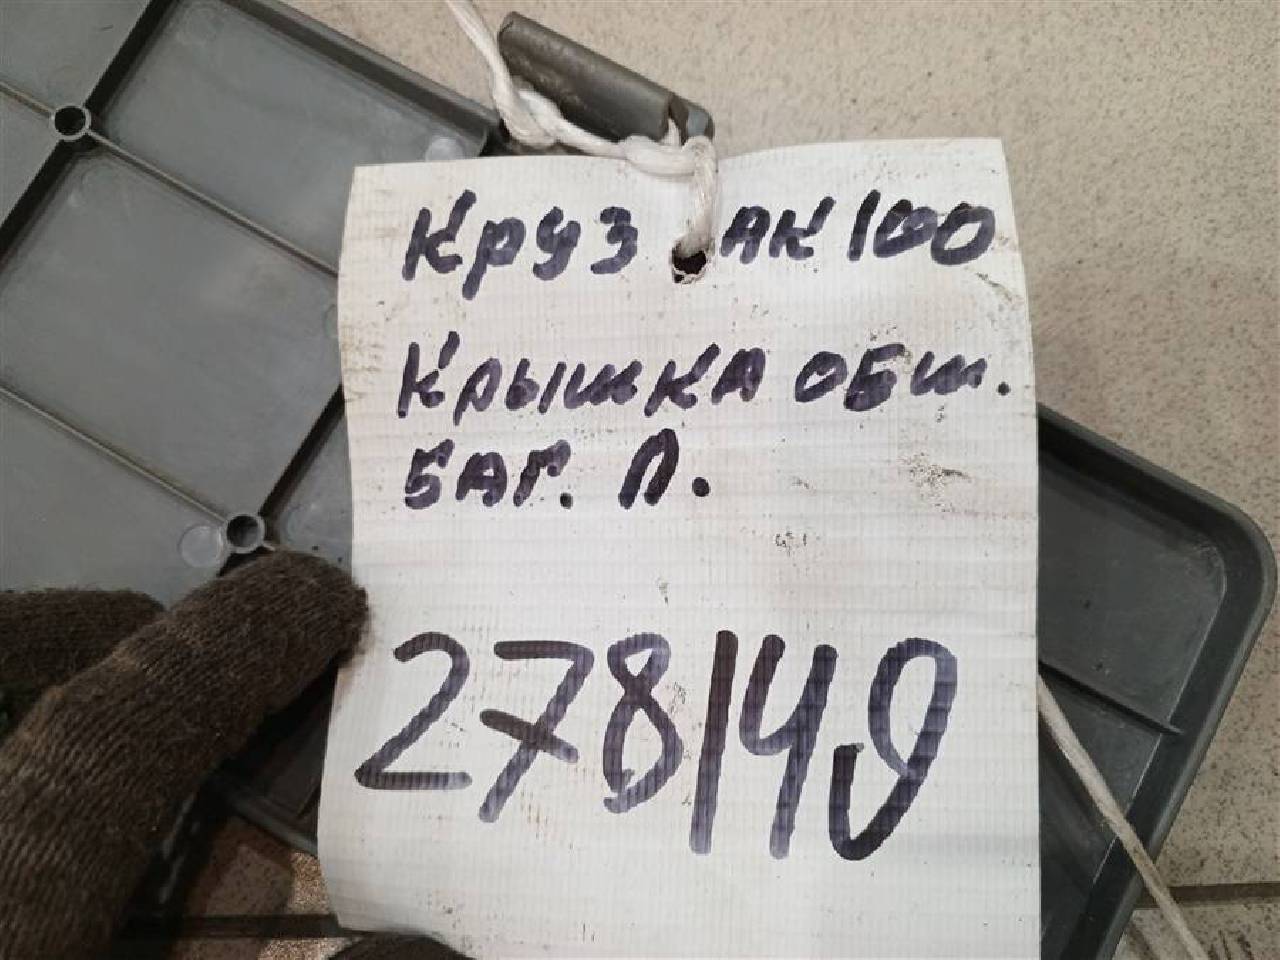 Круз АК100
Крышка обш.
баг. Л.
278149